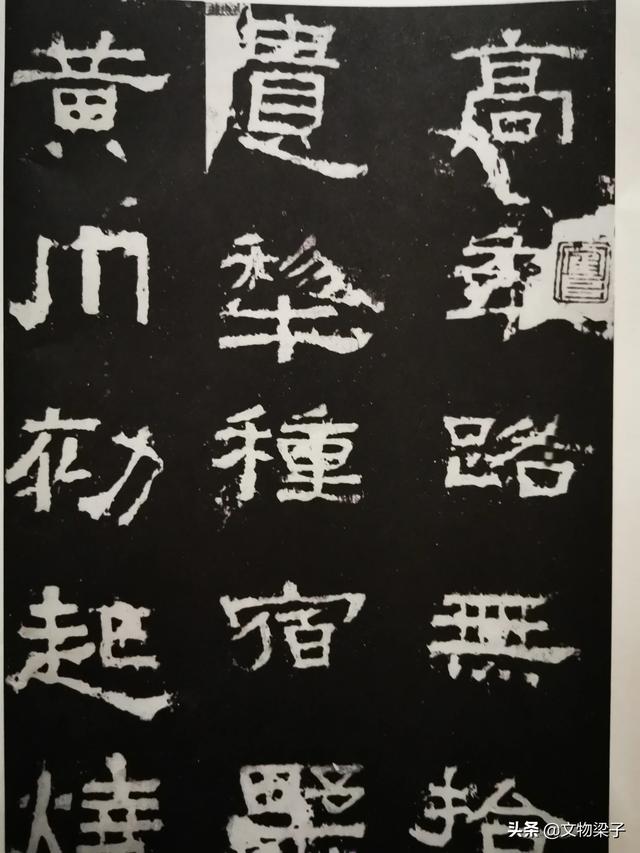 高年路無拾
遺犂種宿野
黃巾初起燒
头条 @文物梁子